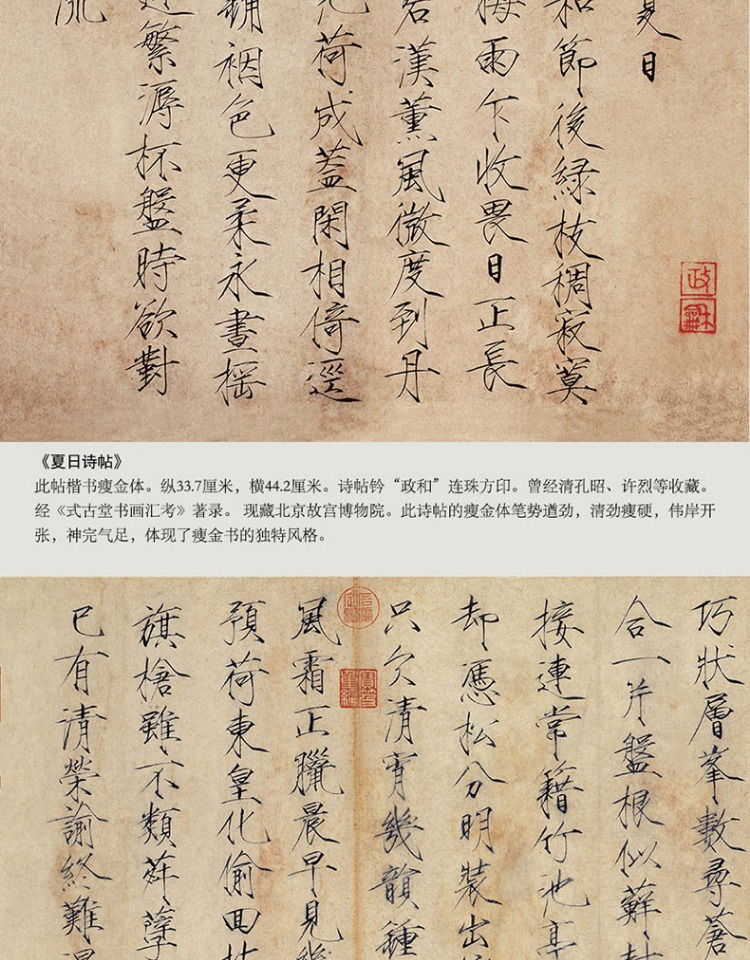 夏日
和節後緑枝稠寂寞
梅雨乍收畏日正長
碧漢薰風微度到丹
池荷成蓋閑相倚逕
鋪裀色更柔永晝揺
避繁溽杯盤時欲對
流
政和
《夏日诗帖》
此帖楷书瘦金体。纵33.7厘米，横44.2厘米。诗帖钤“政和”连珠方印。曾经清孔昭、许烈等收藏。
经《式古堂书画汇考》著录。 现藏北京故宫博物院。此诗帖的瘦金体笔势遒劲，清劲瘦硬，伟岸开
张，神完气足，体现了瘦金书的独特风格。
巧狀層峯數尋蒼
合一片盤根似蘚封
接連常籍竹池亭
却憑松分明裝出
只欠清宵幾韻鍾
風霜正臘晨早見幾
預荷東皇化偷回
旗槍雖不類
已有清榮諭終難